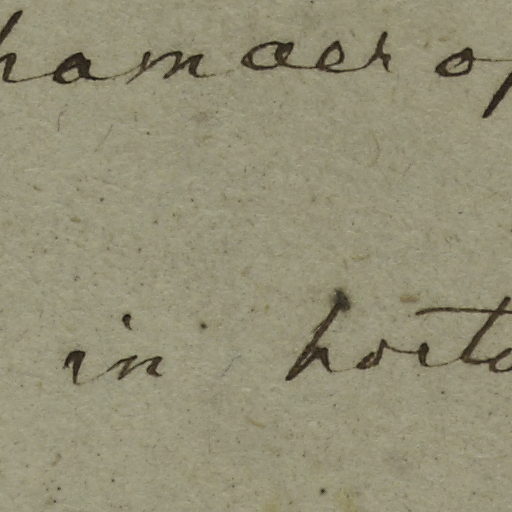 hamaer op
in horto